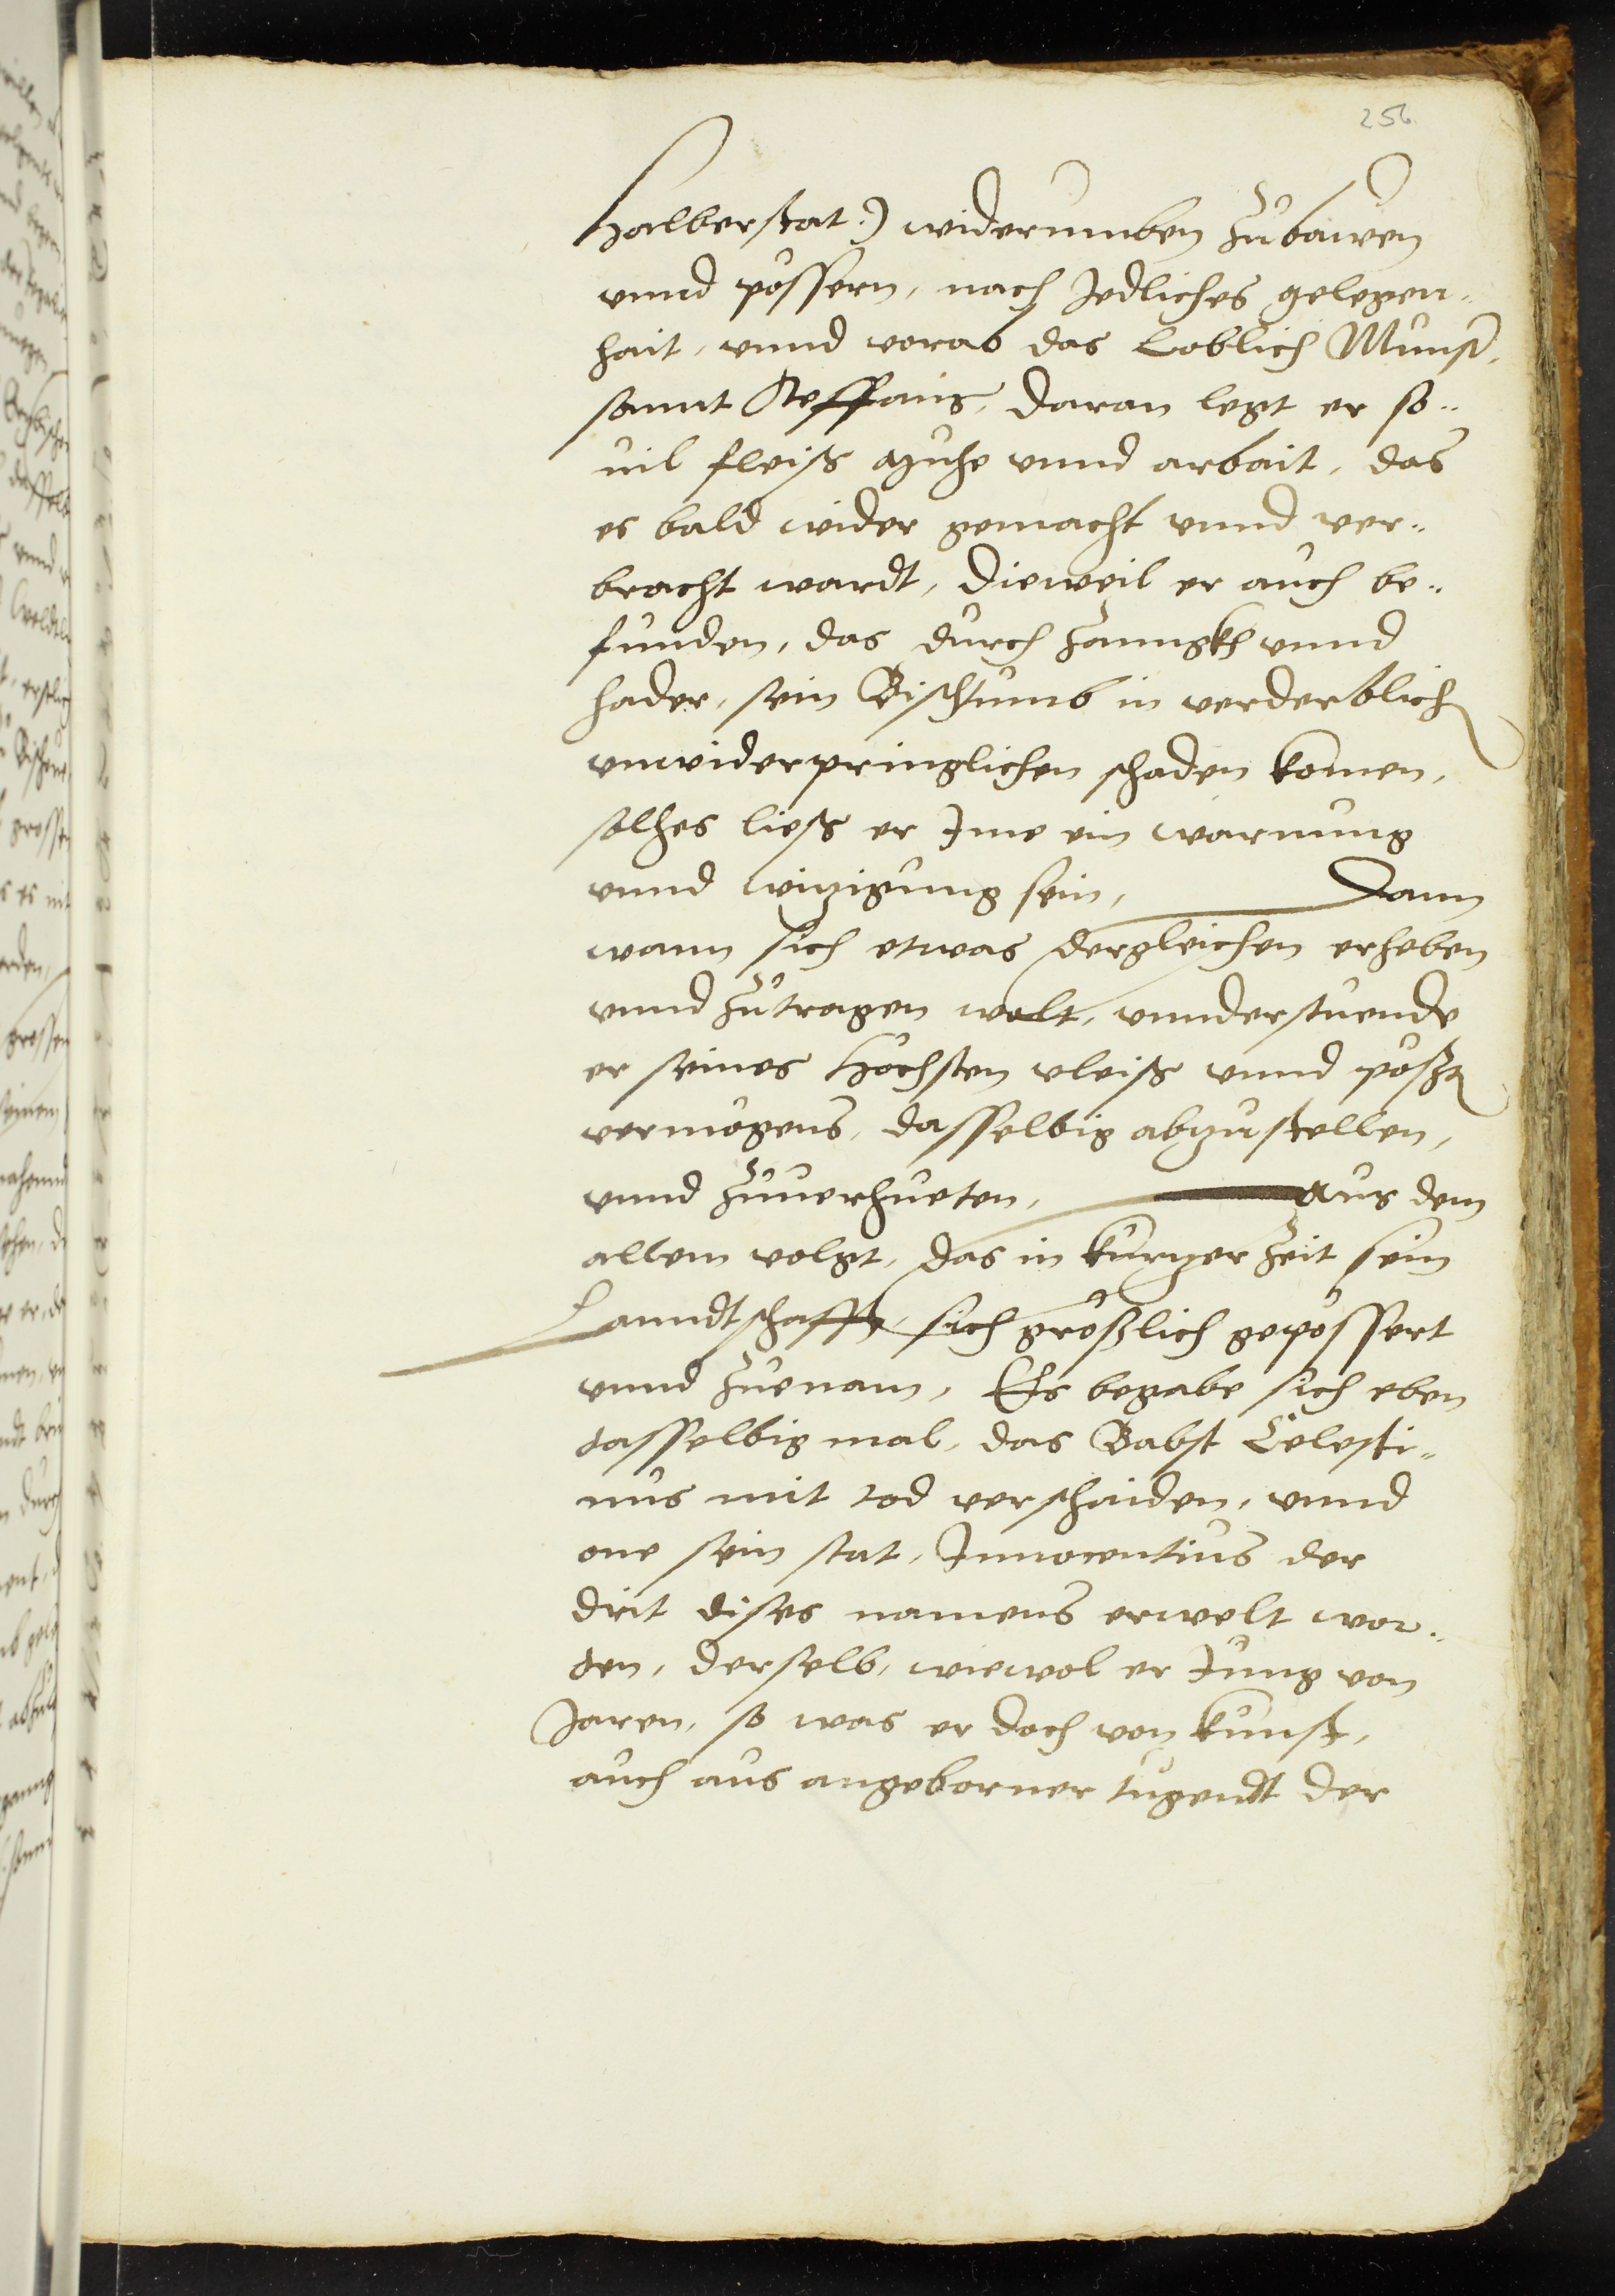 256
Halberstat:) widerumben zůbawen
vnnd possern, nach Jedliches gelegen„
hait, vnnd vorab das Loblich Munst,
sannt Steffans, daran legt er so„
uil fleiß muhe vnnd arbait, das
es bald wider gemacht vnnd ver„
bracht wardt, Dieweil er auch be„
funden, das durch Zanngkh vnnd
hader, sein Bischtumb in verderblich
vnwiderpringlichen schaden komen,
solhes ließ er Jme ein warnung
vnnd witzigung sein, Dann
wann sich etwas dergleichen erheben
vnnd zůtragen wolt, vnnderstuende
er seines Höchsten vleiß vnnd
vermögens, dasselbig abzustellen,
vnnd zůuerhueten, Aus dem
allem volgt, das in kurtzer Zeit sein
Lanndtschafft, sich größlich gepössert
vnnd zuenam, Es begabe sich eben
dasselbig mal, das Babst Celesti„
nus mit tod verschaiden, vnnd
one sein stat, Innocentius der
drit dises namens erwelt wor„
den, Derselb, wiewol er Jung von
Jaren, so was er doch von kunst,
auch aus angeborner tugendt der